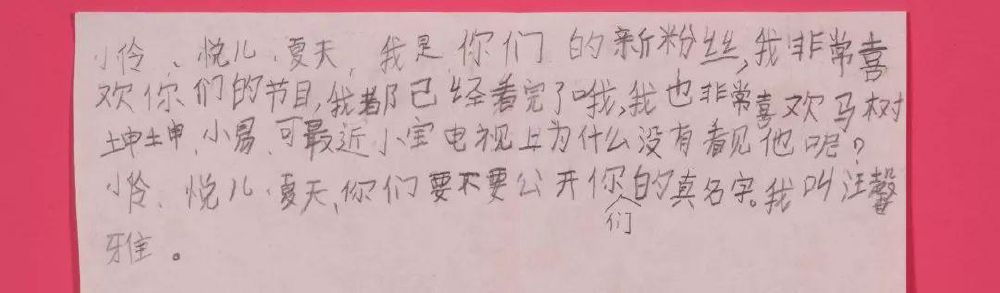 小伶、悦儿、夏天,我是你们的新粉丝,我非常喜
欢你们的节目,我都已经看完了哦,我也非常喜欢马树
坤坤、小易,可最近小宝电视上为什么没有看见他呢?
小伶、悦儿、夏天,你们要不要公开你们的真名字。我叫汪馨
雅。